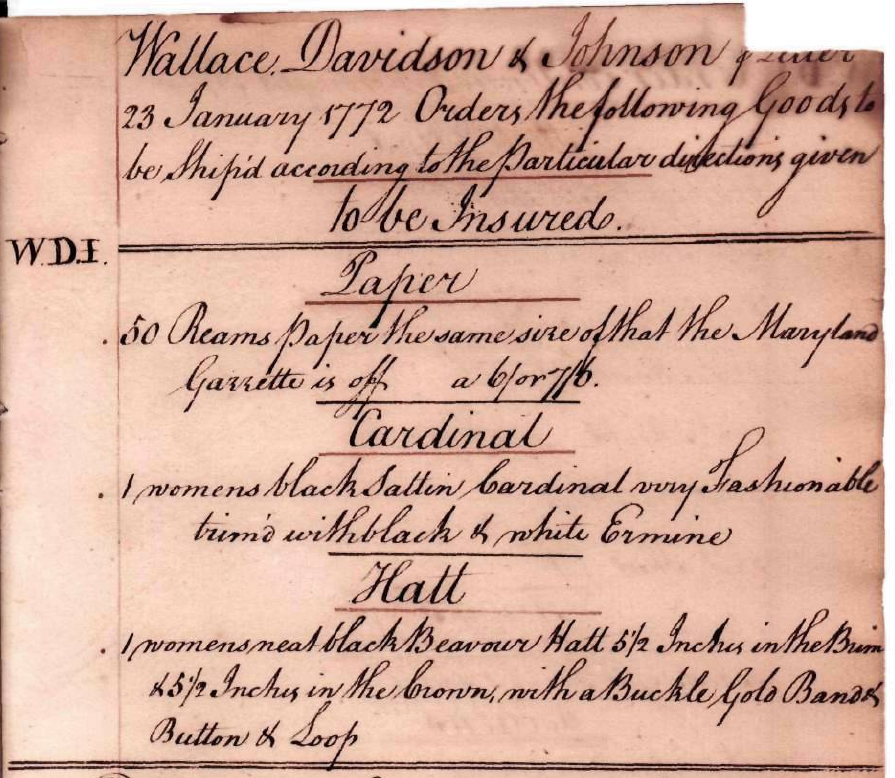 Wallace, Davidson & Johnson Letter
23 January 1772 Orders the following Goods to
be Ship'd according to the Particular directions given
to be Insured.
W.D.I.
Paper
50 Reams paper the same size of that the Maryland
Gazzette is off a 6/ or 7/6.
Cardinal
1 womens black Sattin Cardinal very Fashionable
trim'd with black & white Ermine
Hatt
1 womens neat black Beavour Hatt 5 1/2 Inches in the Brim
& 5 1/2 Inches in the Crown, with a Buckle Gold Band &
Button & Loop